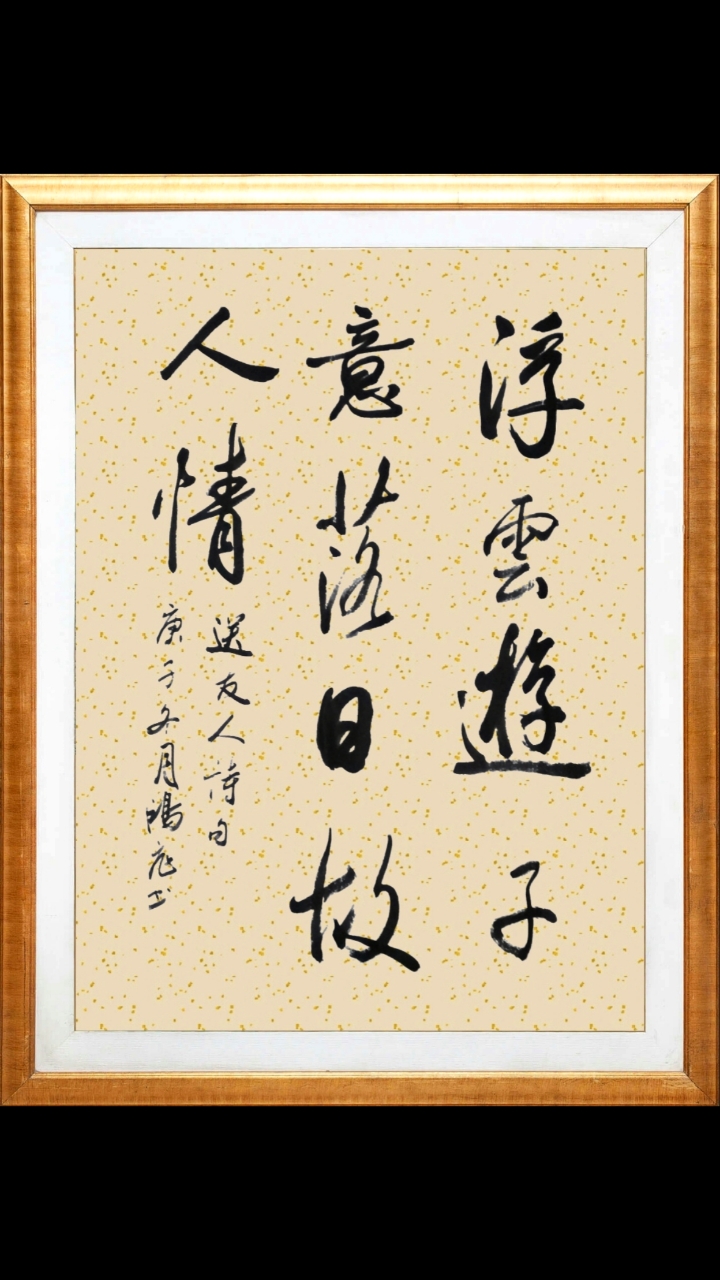 浮雲遊子
意落日故
人情
送友人詩句
庚子冬月鴻庭书